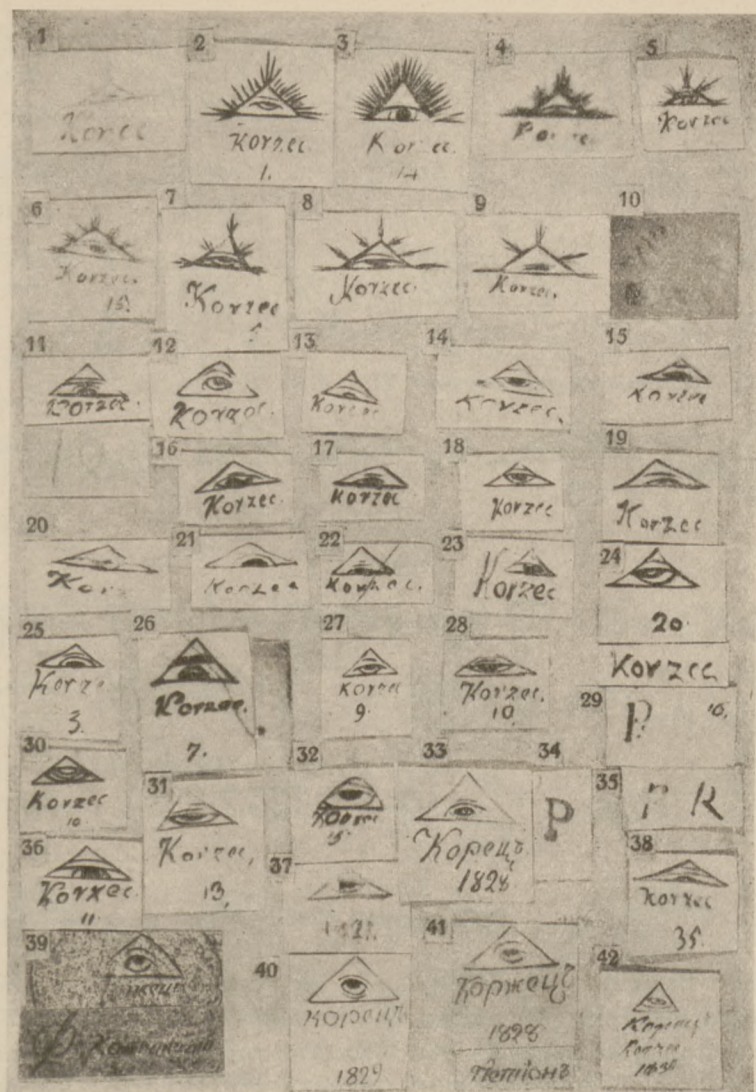 1
Korec
2
Korzec
1.
3
Kor ec.
14
4
5
Korzec
6
Korzec.
15.
7
Korzec
8
Korzec.
9
Korzec.
10
11
Korzec.
12
Korzec.
13
Korzec
14
Korzec.
15
Korzec
16
Korzec.
17
Korzec
18
Korzec
19
Korzec
20
Kor
21
Korzec
22
Korzec.
23
Korzec
24
20
Korzec
25
Korze
3.
26
Korzec.
7.
27
Korzec
9.
28
Korzec.
10.
29
P.
10.
30
Korzec
10
31
Korzec.
13.
32
Korzec
15.
33
Корецъ
1828
34
P
35
r R
36
Korzec.
11.
37
38
Korzec
35.
39
40
Корецъ
1829
41
Коржецъ
1828
Петіонъ
42
Корецъ
Korzec
1830